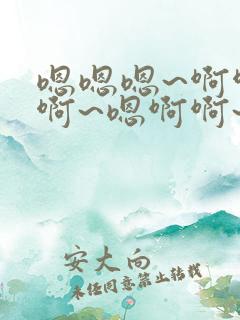 嗯嗯嗯~啊
啊~嗯啊啊~
安大向
未经同意禁止转载